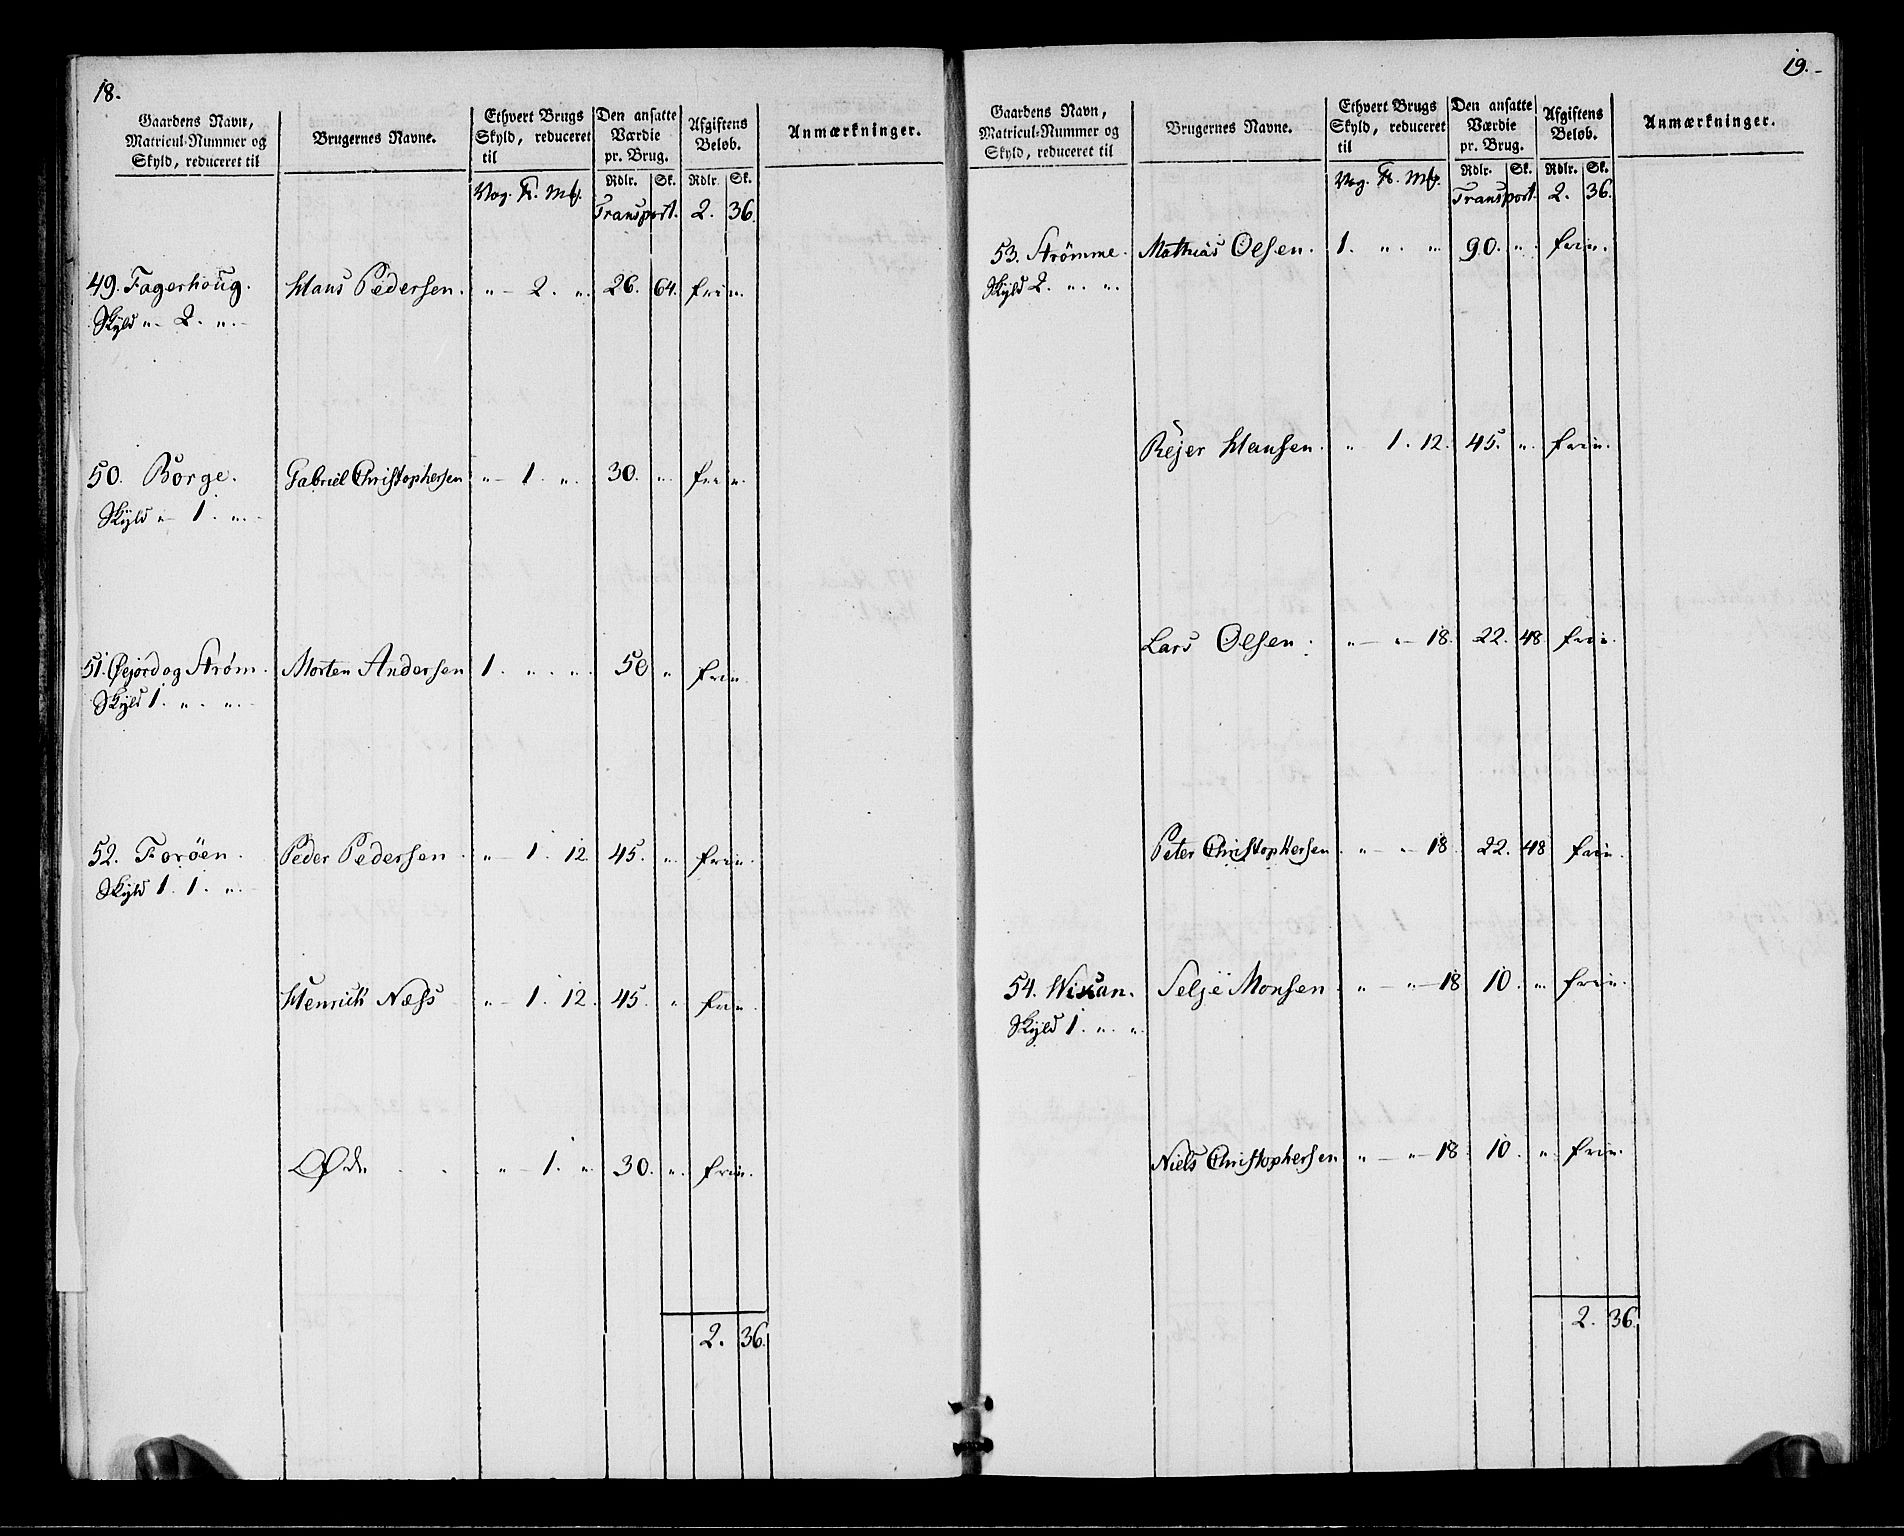 18.
Gaardens Navn, Matricul-Nummer og Skyld, reduceret til
Brugernes Navne.
Ethvert Brugs Skyld, reduceret til
Den ansatte Værdie pr. Brug.
Afgiftens Beløb.
Anmærkninger.
Rdlr. Sk. Rdlr. Sk.
Vog. Mk.
Transport. 2. 36.
49. Fagerhoug. Hans Pedersen. „ – 2. „ 26. 64. frie.
Skyld „ – 2. „ –
50. Borge. Gabriel Christophersen „ – 1. „ 30. „ frie.
Skyld „ – 1. „ –
51. Øejord og Strøm. Morten Andersen 1. „ „ 50 „ frie.
Skyld 1. „ „ –
52. Forøen. Peder Pedersen „ – 1. 12 45. „ frie.
Skyld 1. 1. „ –
Henrick Næss „ – 1. 12. 45. „ frie.
Øde „ – 1. „ 30. „ frie.
2. 36.
19. –
Gaardens Navn, Matricul-Nummer og Skyld, reduceret til
Brugernes Navne.
Ethvert Brugs Skyld, reduceret til
Den ansatte Værdie pr. Brug.
Afgiftens Beløb.
Anmærkninger.
Rdlr. Sk. Rdlr. Sk.
Vog. Mk.
Transport. 2. 36.
53. Strømme. Mathias Olsen. 1. „ „ 90. „ frie.
Skyld 2. „ „
Rejer Hansen. „ 1. 12. 45. „ frie.
Lars Olsen. „ – „ – 18. 22. 48 frie.
Peter Christophersen „ – „ 18. 22. 48 frie.
54. Wixan. Selje Monsen „ – „ – 18 10. „ frie.
Skyld 1. „ „
Niels Christophersen „ – „ – 18 10. „ frie.
2. 36.